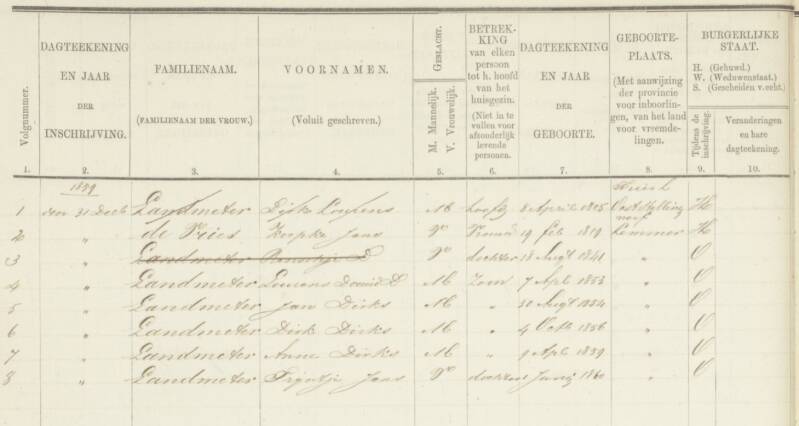 Volgnummer.
DAGTEEKENING
EN JAAR
DER
INSCHRIJVING.
FAMILIENAAM.
(FAMILIENAAM DER VROUW.)
VOORNAMEN.
(Voluit geschreven.)
GESLACHT.
M. Mannelijk.
V. Vrouwelijk.
BETREK-
KING
van elken
persoon
tot h. hoofd
van het
huisgezin.
(Niet in te
vullen voor
afzonderlijk
levende
personen.
DAGTEEKENING
EN JAAR
DER
GEBOORTE.
GEBOORTE-
PLAATS.
(Met aanwijzing
der provincie
voor inboorlin-
gen, van het land
voor vreemde-
lingen.
BURGERLIJKE
STAAT.
H. (Gehuwd.)
W. (Weduwenstaat.)
S. (Gescheiden v. echt.)
Tijdens de
inschrijving.
Veranderingen
en hare
dagteekening.
1. 2. 3. 4. 5. 6. 7. 8. 9. 10.
1859
1 den 31 Decb Landmeter M 8 April H
2 " de Vries Jans V 19 feb 1819 Lemmer H
3 " Landmeter D V dochter 18 Augt 1841 " O
4 " Landmeter M Zoon 7 Apl 1853 " O
5 " Landmeter Jan Dirks M " 30 Augt 1854 " O
6 " Landmeter Dirk Dirks M " 4 Octb 1856 " O
7 " Landmeter Anne Dirks M " 9 Apl 1859 " O
8 " Landmeter Trijntje Jans V dochter Junij 1860 " O